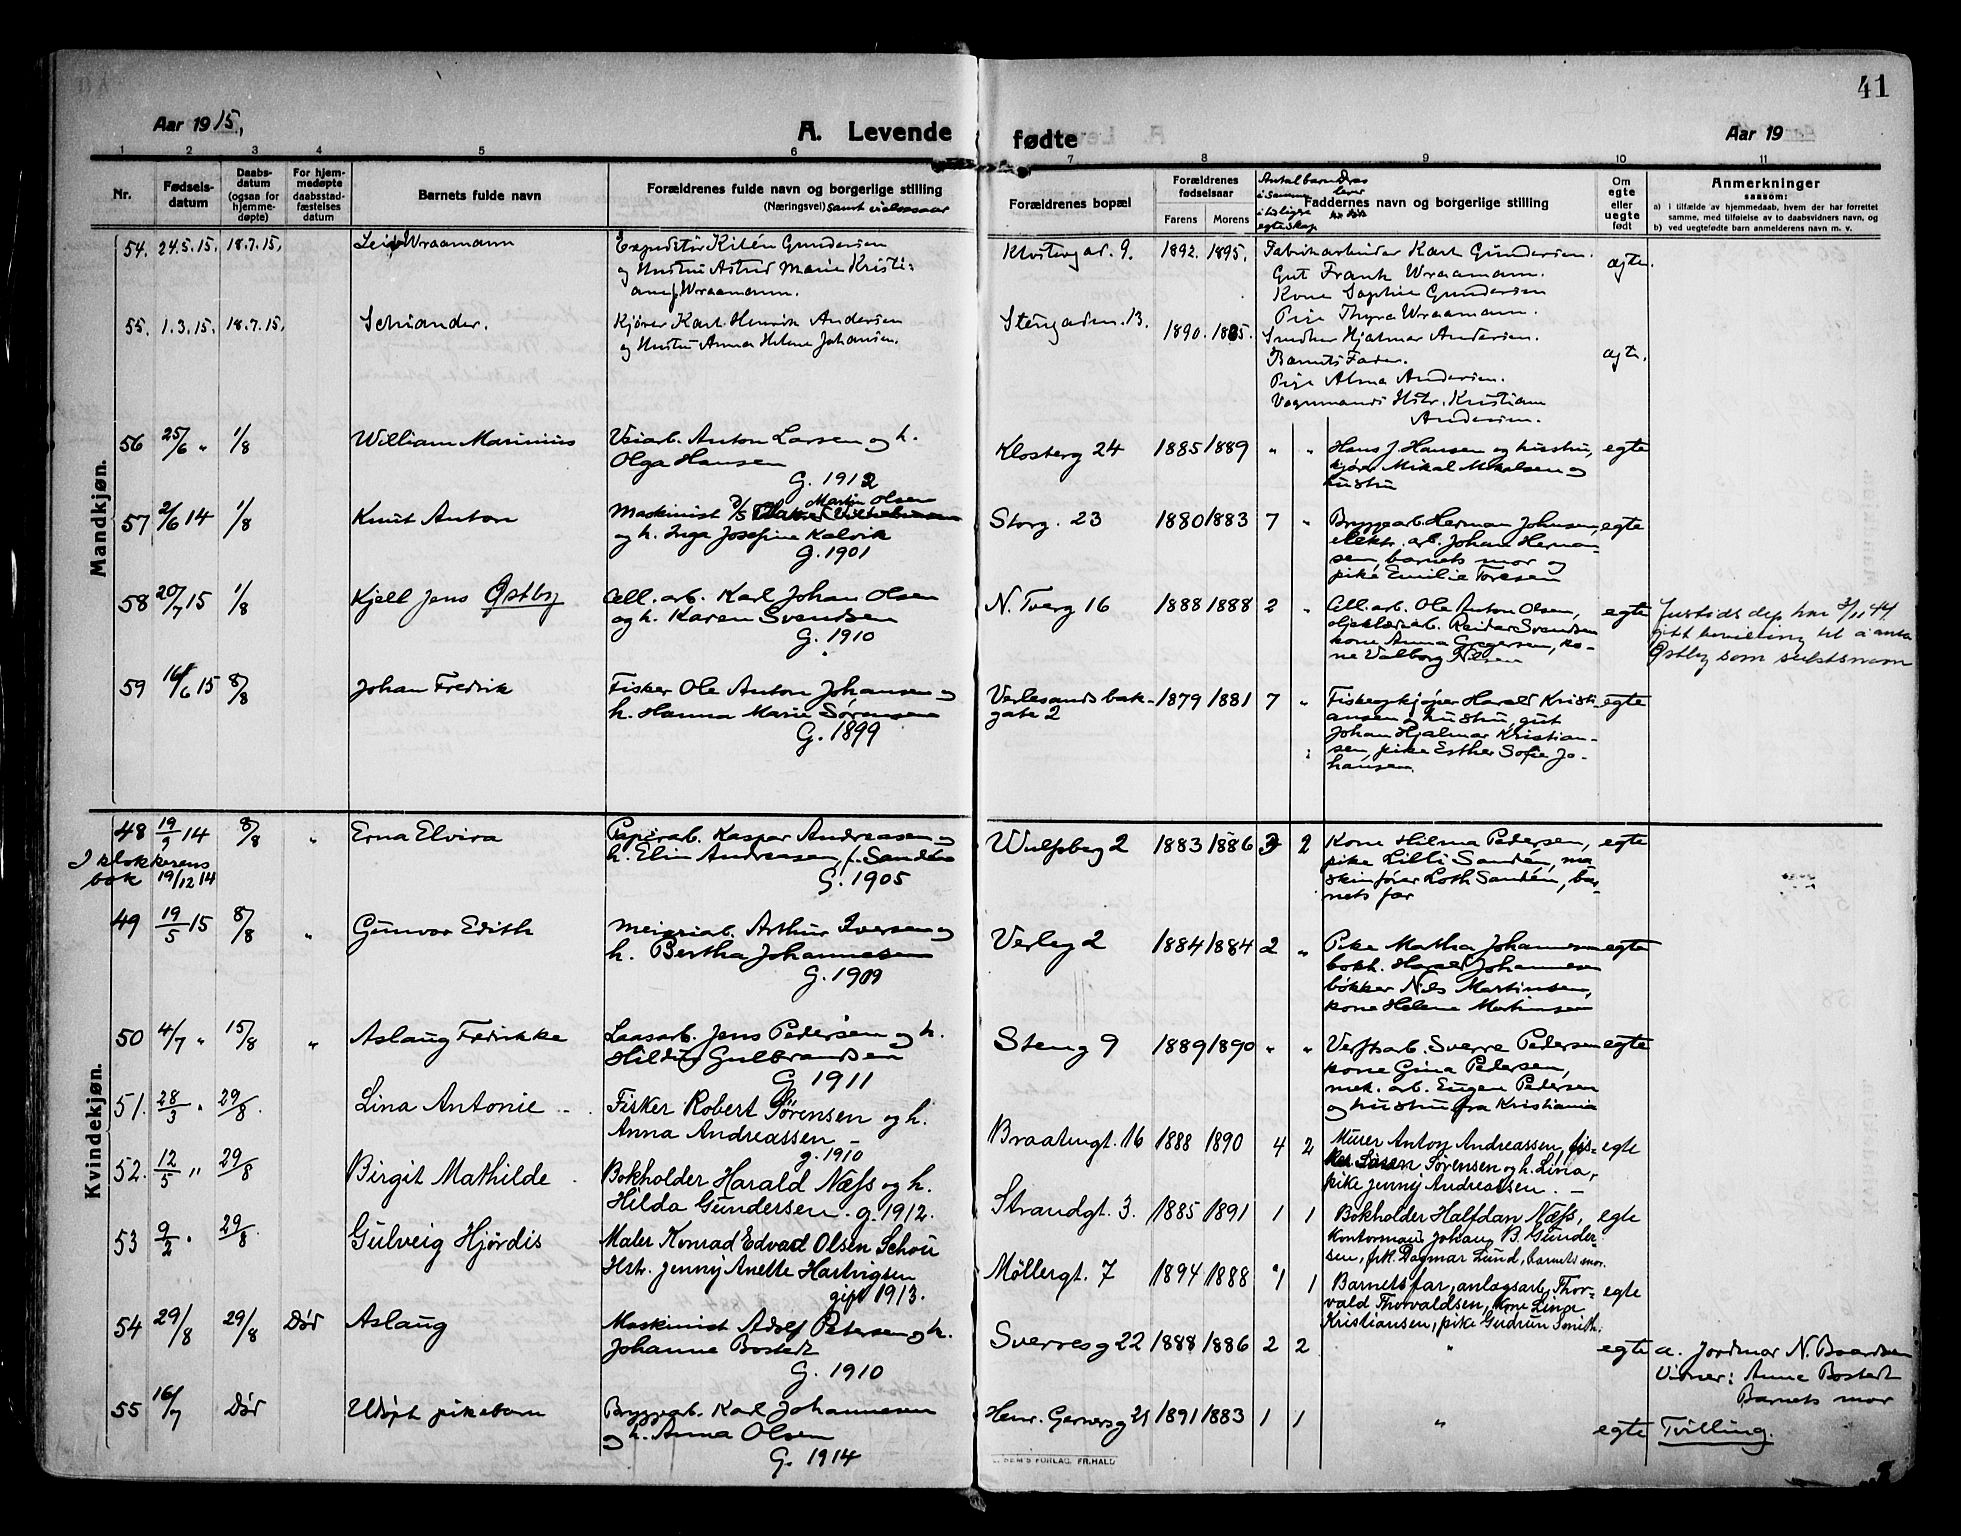 41
Aar 1915,
A. Levende
fødte
Aar 19
1 2 3 4 5 6 7 8 9 10 11
Nr.
Fødsels-
datum
Daabs-
datum
(ogsaa for
hjemme-
døpte)
For hjem-
medøpte
daabsstad-
fæstelses
datum
Barnets fulde navn
Forældrenes fulde navn og borgerlige stilling
(Næringsvei) samt vielsesaar
Forældrenes bopæl
Forældrenes
fødselsaar
Farens Morens
Antal barn
Faddernes navn og borgerlige stilling
Om
egte
eller
uegte
født
Anmerkninger
saasom:
a) i tilfælde av hjemmedaab, hvem der har forrettet
samme, med tilføielse av to daabsvidners navn, og
b) ved uegtefødte barn anmelderens navn m. v.
Mandkjøn.
54. 24.5.15. 18.7.15.
Leif Wraamann
Gundersen
og Hustru Astrid Marie Kristi-
ane f. Wraamann.
9. 1892. 1895.
Fabrikarbeider Karl Gundersen.
Gut Frank Wraamann.
Kone Sophie Gundersen
Pige Thyra Wraamann.
ægte.
55. 1.3.15. 18.7.15.
Schiander.
Kjører Karl Henrik Andersen
og Hustru Anna Helene Johansen.
Stengaden. 13. 1890.
Smed Hjalmar Andersen.
Barnets Fader.
Pige Alma Andersen.
Vognmands Hstr. Kristiane
Andersen.
ægte.
56 25/6 " 1/8
William Marinius
Veiarb. Anton Larsen og h.
Olga Hansen
G. 1912
Klosterg 24 1885 1889 " "
Hans J. Hansen og hustru,
kjører Mikal Mikalsen og
hustru
egte
57 2/6 14 1/8
Knut Anton
Maskinist D/S Martin Olsen
og h. Inga Josefine Kalvik
G. 1901
Storg. 23 1880 1883 7 "
Bryggearb. Herman Johnsen,
elektr. arb. Johan Herman-
sen, barnets mor og
pike Emilie Toresen
egte
58 20/7 15 1/8
Kjell Jens Østby
Cell. arb. Karl Johan Olsen
og h. Karen Svendsen
G. 1910
N. Tverg 16 1888 1888 2 "
Cell. arb. Ole Anton Olsen,
oljeklædearb. Reidar Svendsen
kone Anna Gregersen, ko-
ne Valborg Nilsen
egte
Justisdep. har 3/11 44
gitt bevilling til å anta
Østby som slektsnavn
59 16/6 15 8/8
Johan Fredrik
Fisker Ole Anton Johansen og
h. Hanna Marie Sørensen
G. 1899
Verlesands bak-
gate 2 1879 1881 7 "
Fiskeopkjøper Harald Kristi-
ansen og hustru, gut
Johan Hjalmar Kristian-
sen, pike Esther Sofie Jo-
hansen.
egte
Kvindekjøn.
48 19/9 14 8/8 "
I klokkerens
bok 19/12 14
Erna Elvira
Papirarb. Kaspar Andreasen og
h. Elin Andreasen, f. Sandén
G. 1905
Wulfsberg 2 1883 1886 3 2
Kone Hilma Pedersen,
pike Lilli Sandén, ma
skinfører Loth Sandén, bar-
nets far
egte
49 19/5 15 8/8 "
Gunvor Edith
Meieriarb. Arthur Iversen og
h. Bertha Johannesen
G. 1909
Verleg 2 1884 1884 2 "
Pike Martha Johannesen
bokh. Harald Johannesen
bøkker Nils Martinsen,
kone Helene Martinsen
egte
50 4/7 " 15/8 "
Aslaug Fredrikke
Laasarb. Jens Pedersen og h.
Hildur Gulbrandsen
G 1911
Steng 9 1889 1890 " "
Verftsarb. Sverre Pedersen
kone Gina Pedersen,
mek. arb. Eugen Pedersen
og hustru fra Kristiania
egte
51. 28/3 " 29/8.
Lina Antonie
Fisker Robert Sørensen og h.
Anna Andreassen
g. 1910
Braatengt. 16 1888 1890 4 2
Murer Anton Andreassen, fis-
ker Sørensen og h. Lina,
pike Jenny Andreassen.
egte
52. 12/5 " 29/8
Birgit Mathilde
Bokholder Harald Næss og h.
Hilda Gundersen. g. 1912.
Strandgt. 3. 1885 1891 1 1
Bokholder Halfdan Næss,
Kontormand Johan B. Gunder-
sen, frk. Dagmar Lund, barnets mor.
egte
53 9/2 " 29/8.
Gulveig Hjørdis
Maler Konrad Edvard Olsen Schou
Hstr. Jenny Anette Hartvigsen
gift 1913.
Møllergt. 7 1894 1888 1 1
Barnets far, anlægsarb. Thor-
vald Thorvaldsen, Kone Lina
Kristiansen, pike Gudrun Smith.
egte
54 29/8 29/8 Død
Aslaug
Maskinist Adolf Petersen og h.
Johanne Bostedt
G. 1910
Sverresg 22 1888 1886 2 2 "
egte
a. Jordmor N. Baardsen
Vidner: Anne Bostedt
Barnets mor
55 16/7 Død
Udøpt pikebarn
Bryggearb. Karl Johannesen
og h. Anna Olsen
G. 1914
Henr. Gernersg 21 1891 1883 1 1 "
egte Tvilling.
SEM'S FORLAG, FR.HALD